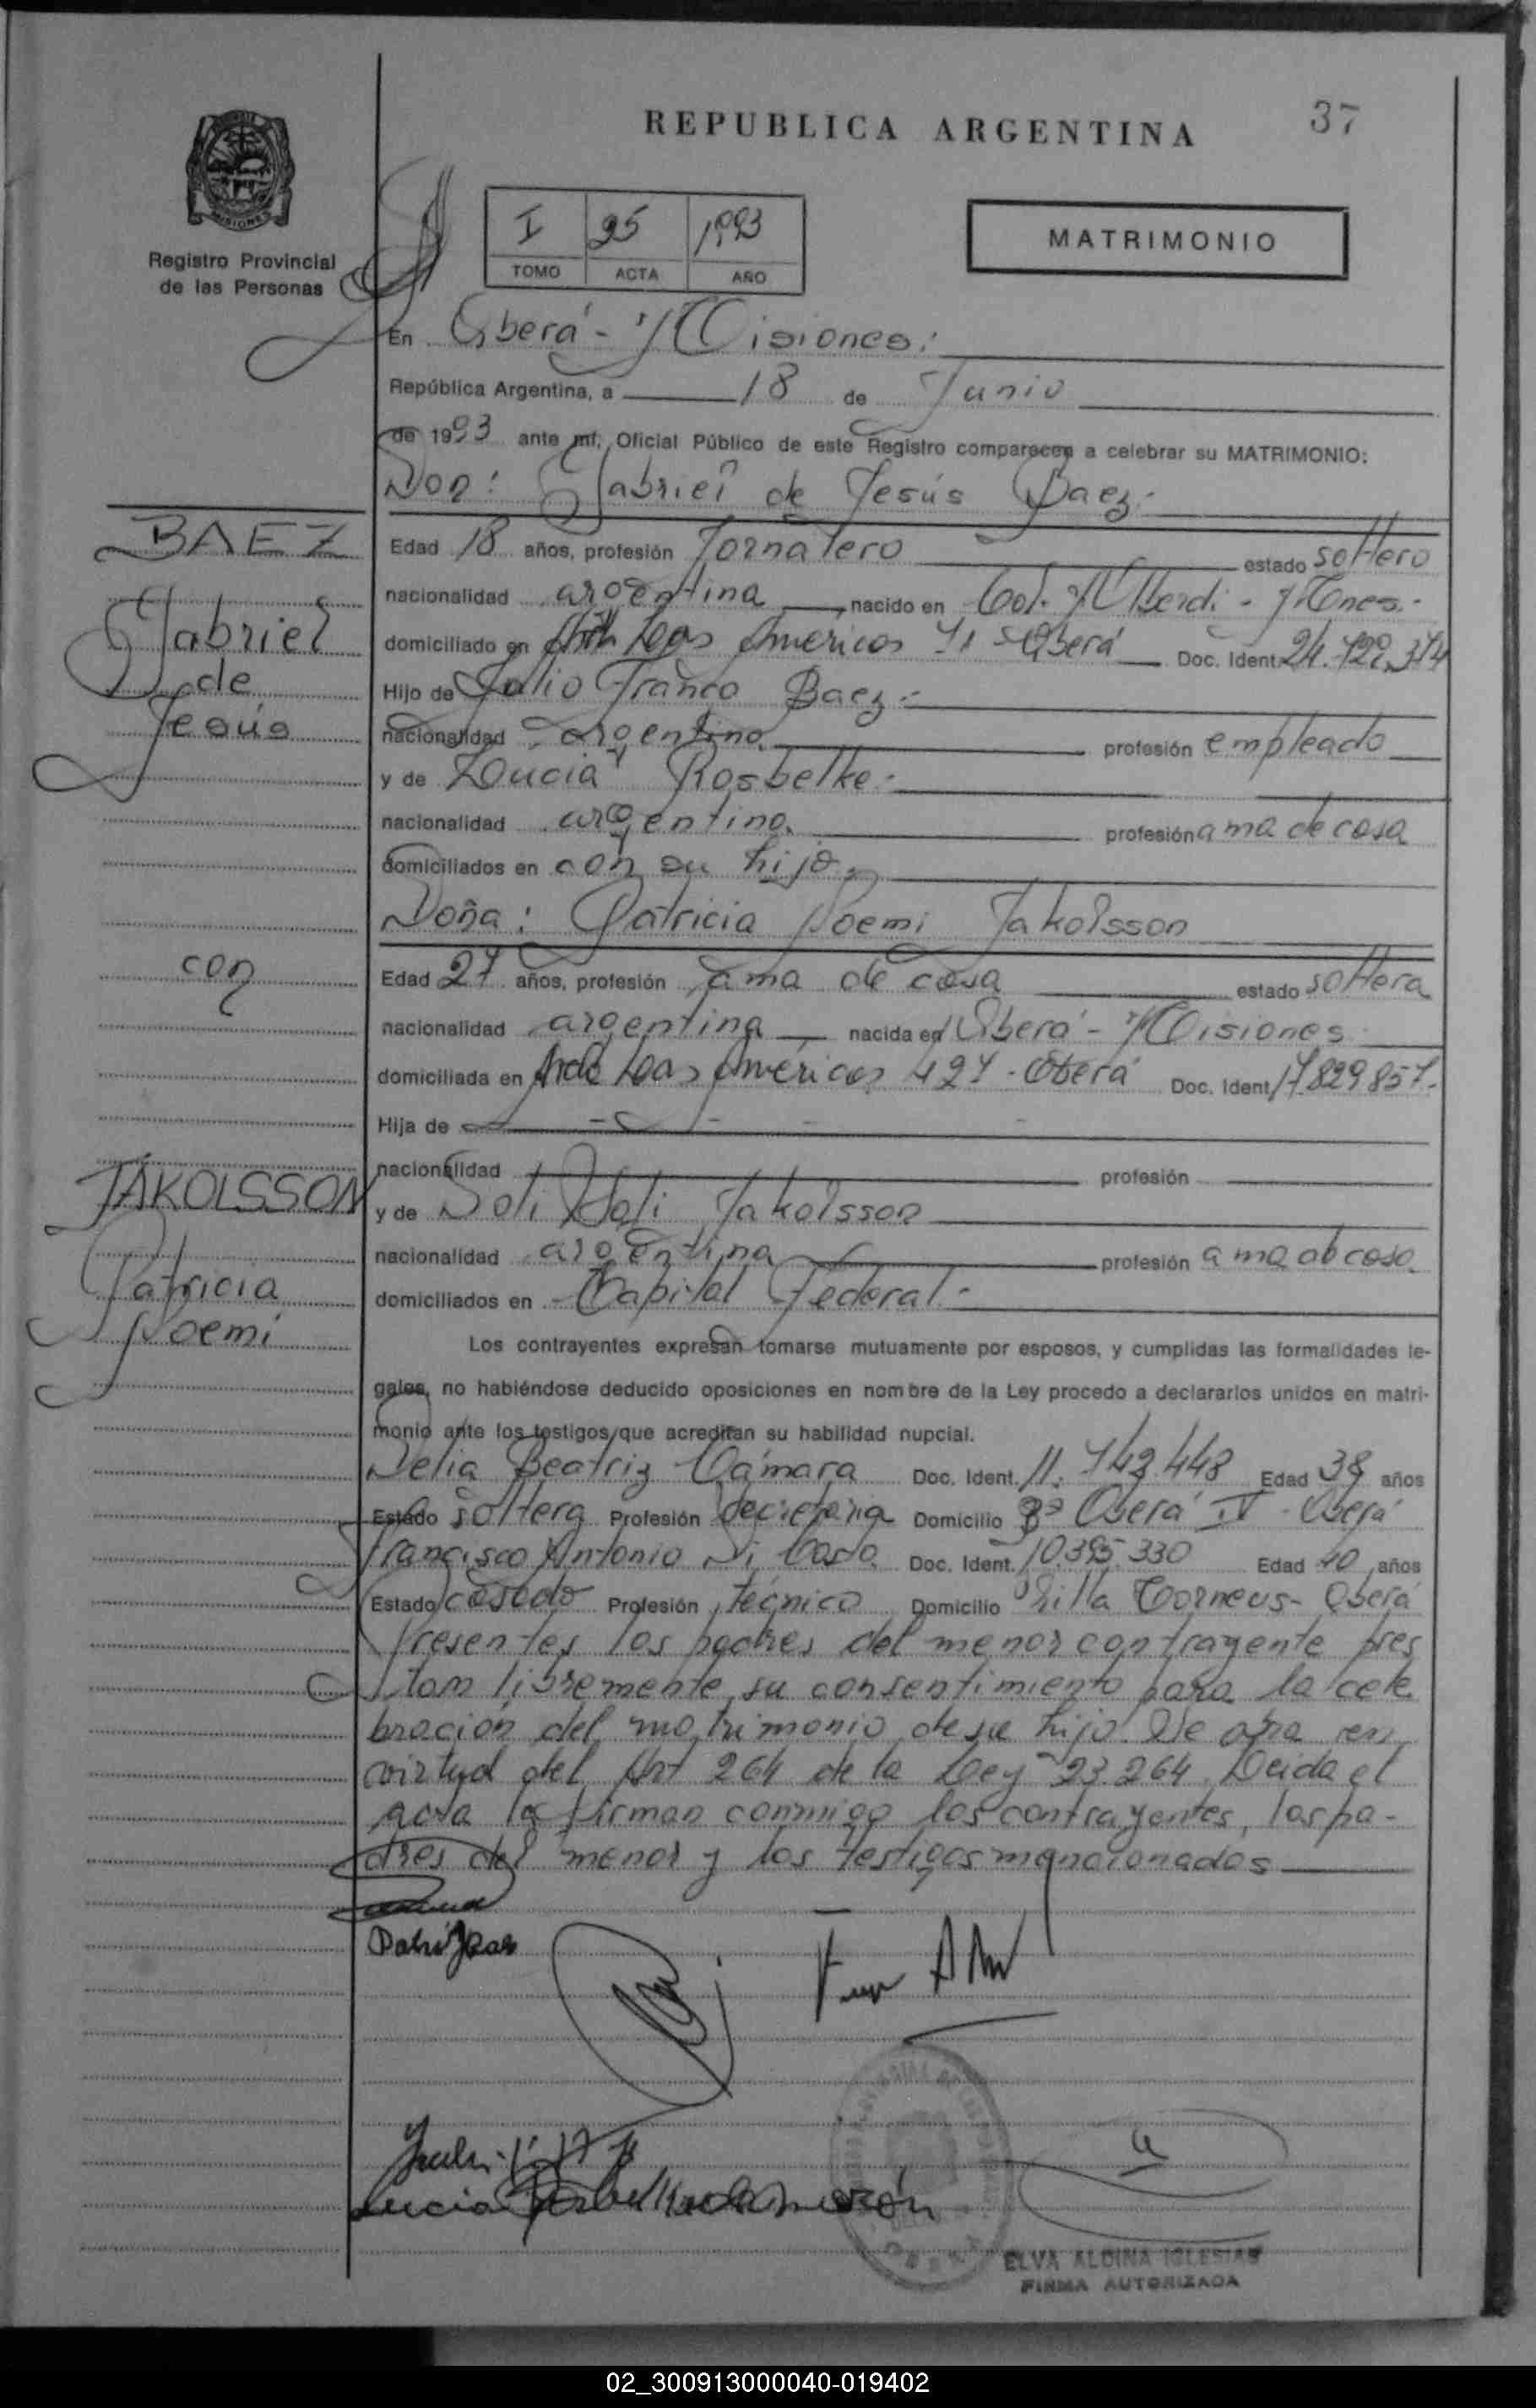 REPUBLICA ARGENTINA
37
MISIONES
Registro Provincial
de las Personas
I 95 1993
TOMO ACTA AÑO
MATRIMONIO
En Oberá - Misiones.
República Argentina, a 18 de Junio
de 1993 ante mí, Oficial Público de este Registro comparecen a celebrar su MATRIMONIO:
Don: Gabriel de Jesús Baez.-
BAEZ
Gabriel
de
Jesús
Edad 18 años, profesión Jornalero estado soltero
nacionalidad argentina nacido en Col. Alberdi - Mnes.-
domiciliado en Las Américas Oberá Doc. Ident. 24.722.374
Hijo de Julio Franco Baez.-
nacionalidad argentina profesión empleado
y de Lucia Rosbelke.-
nacionalidad argentina profesión ama de casa
domiciliados en con su hijo.
Doña: Patricia Noemi Jakolsson
con
Edad 27 años, profesión ama de casa estado soltera
nacionalidad argentina nacida en Oberá - Misiones
domiciliada en Avda Las Américas 427 - Oberá Doc. Ident. 17.829.857.
Hija de
nacionalidad profesión
JAKOLSSON
Patricia
Noemi
y de Doli Jakolsson
nacionalidad argentina profesión ama de casa
domiciliados en Capital Federal.-
Los contrayentes expresan tomarse mutuamente por esposos, y cumplidas las formalidades le-
gales, no habiéndose deducido oposiciones en nombre de la Ley procedo a declararlos unidos en matri-
monio ante los testigos que acreditan su habilidad nupcial.
Delia Beatriz Cámara Doc. Ident. 11.742.448 Edad 38 años
Estado soltera Profesión Secretaria Domicilio Bº Oberá IV - Oberá
Francisco Antonio Di Doc. Ident. 10.395.330 Edad 40 años
Estado casado Profesión técnico Domicilio Villa Torneus - Oberá
Presentes los padres del menor contrayente pres
tan libremente su consentimiento para la cele
bración del matrimonio de su hijo en
virtud del Art 264 de la Ley 23.264. Leida el
acta la firman conmigo los contrayentes, los pa-
dres del menor y los testigos mencionados
ELVA ALDINA IGLESIAS
FIRMA AUTORIZADA
02_300913000040-019402